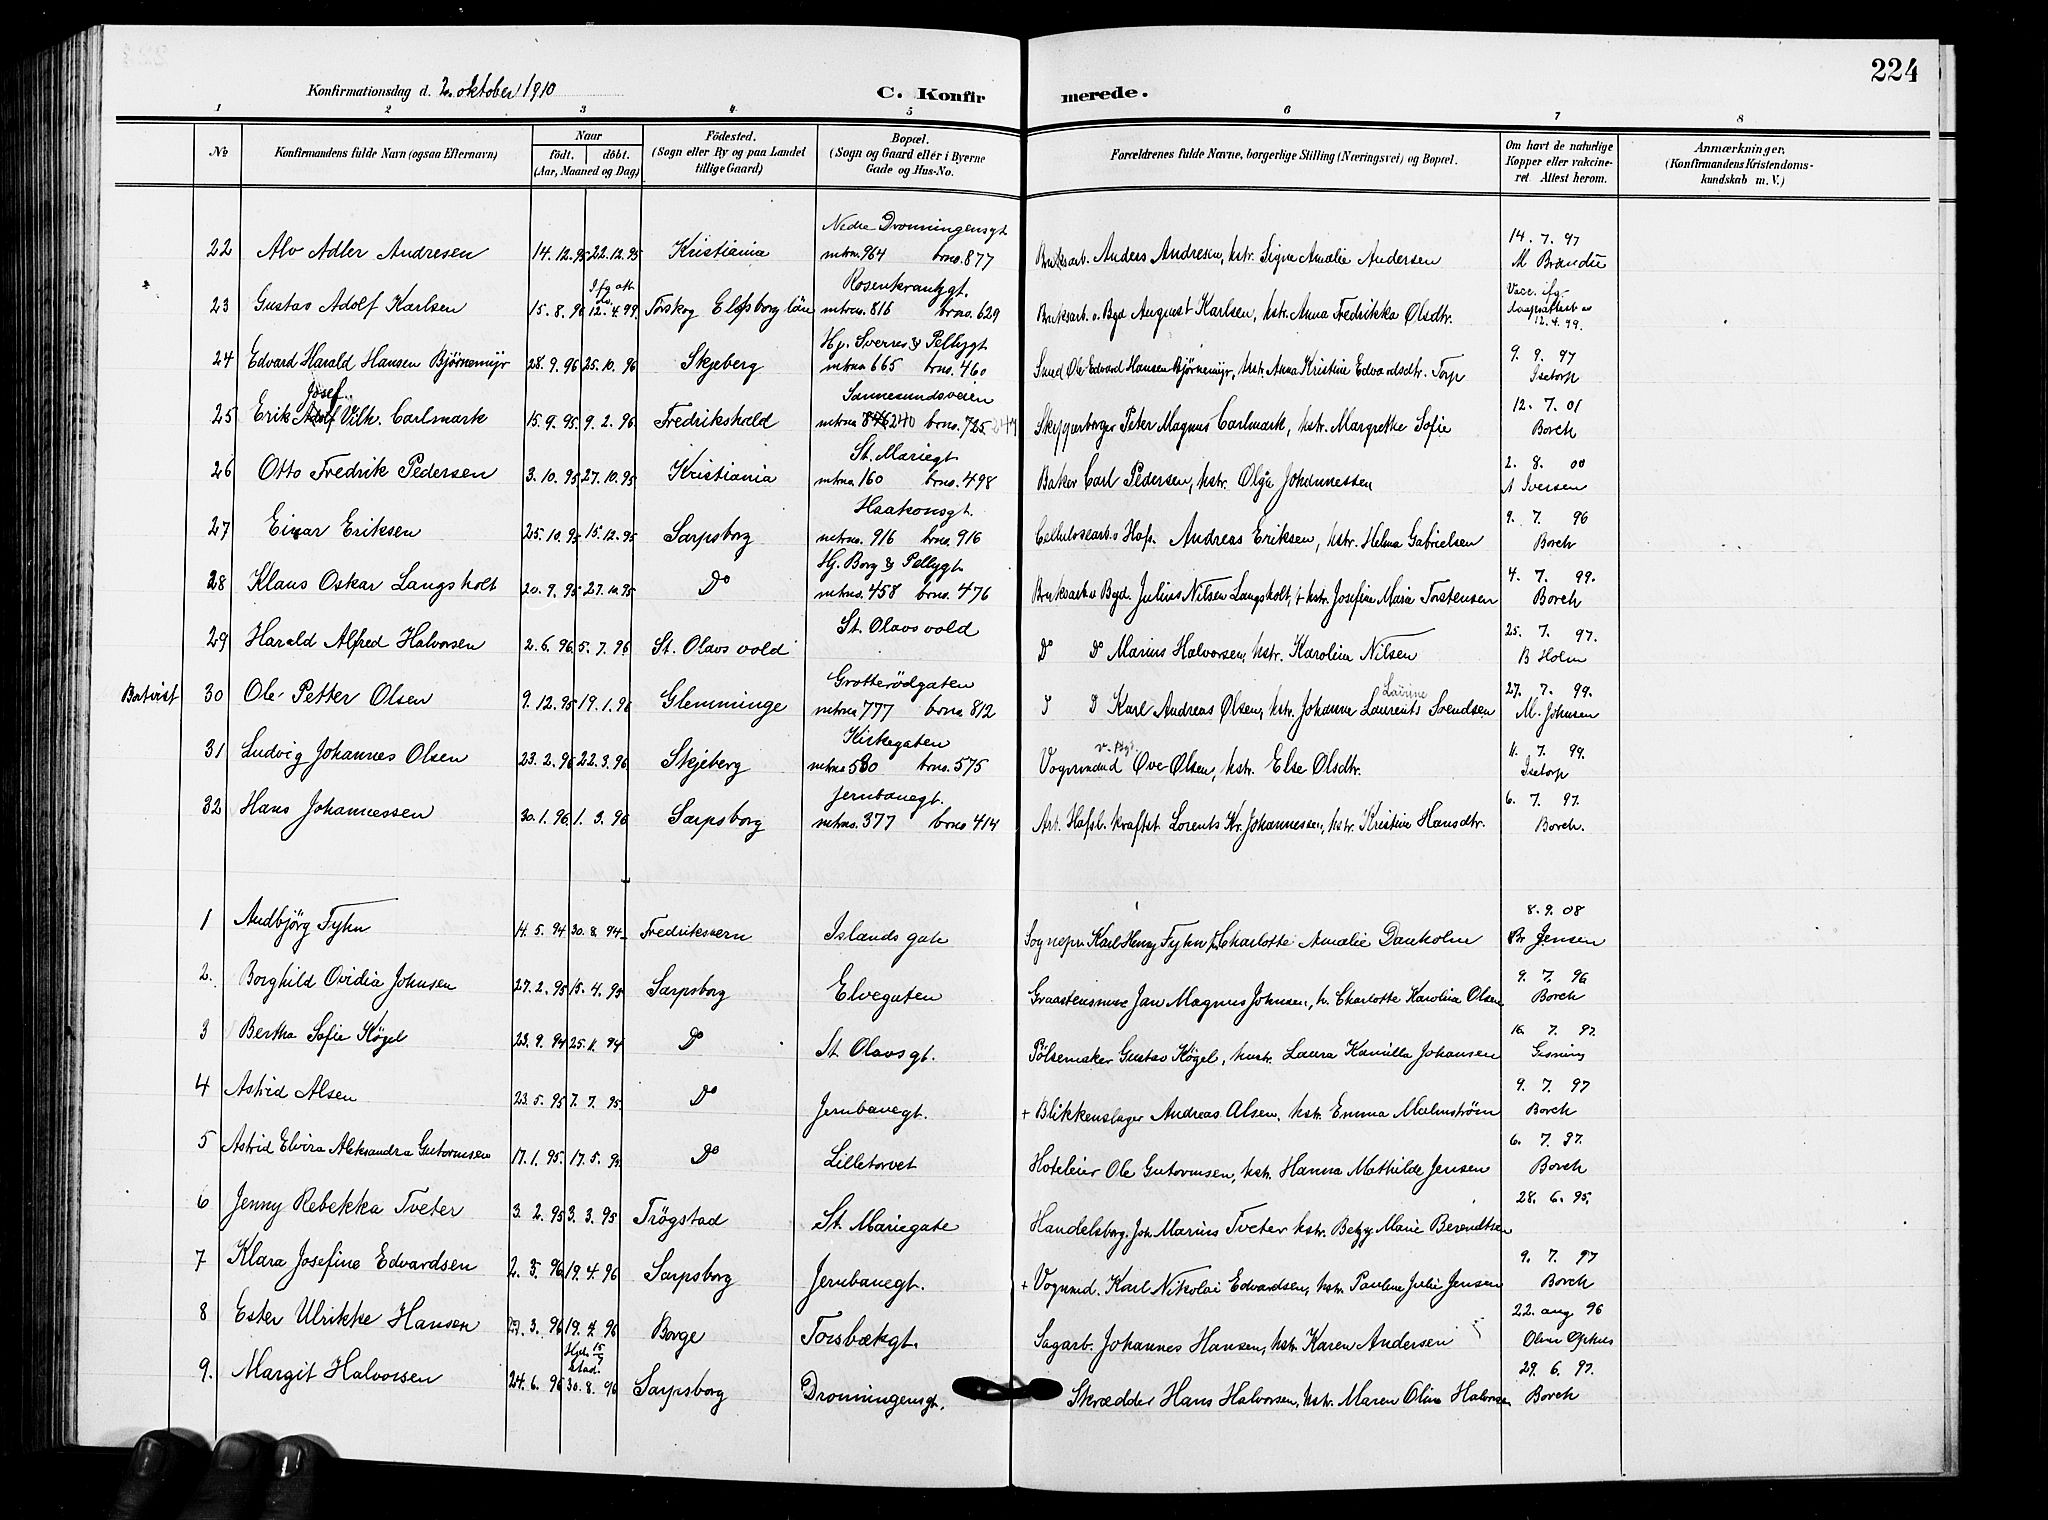 224
Konfirmationsdag d. 2. oktober 1910
C. Konfirmerede.
1 2 3 4 5 6 7 8
No
Konfirmandens fulde Navn (ogsaa Efternavn)
Naar
födt. döbt.
(Aar, Maaned og Dag)
Födested.
(Sogn eller By og paa Landet
tillige Gaard)
Bopæl.
(Sogn og Gaard eller i Byerne
Gade og Hus-No.
Forældrenes fulde Navne, borgerlige Stilling (Næringsvei) og Bopæl.
Om havt de naturlige
Kopper eller vakcine-
ret Attest herom.
Anmærkninger.
(Konfirmandens Kristendoms-
kundskab m. V.)
Nedre Dronningensgt
22 Alv Adler Andresen 14.12.95 22.12.95 Kristiania mtrno. 964 brno. 877 Bruksarb. Anders Andresen, hstr. Signe Amalie Andersen 14. 7. 97 M Brandti
Rosenkrantzgt.
23 Gustav Adolf Karlsen 15. 8. 96 Ifg att 12. 4. 99. Torskog Elfsborg län mtrno. 816 brno. 629 Bruksarb. v. Bgd August Karlsen, hstr. Anna Fredrikka Olsdtr. Vacc. ifg. daapsattest av 12.4.99.
Hj. Sverres & Pellygt
24 Edvard Harald Hansen Bjørnemyr 28. 9. 96 25. 10. 96 Skjeberg mtrno 665 brno. 460 Smed Ole Edvard Hansen Bjørnemyr, hstr. Anna Kristine Edvardsdtr. Torp 9. 9. 97 Isetorp
Josef Sannesundsveien
25 Erik Adolf Vilh. Carlmark 15. 9. 95. 9. 2. 96 Fredrikshald mtrno 846 240 brno. 725 244 Skipparborger Peter Magnus Carlmark, hstr. Margrethe Sofie 12. 7. 01 Borch
St. Mariegt
26 Otto Fredrik Pedersen 3. 10. 95 27. 10. 95 Kristiania mtrno 160 brno. 498 Baker Carl Pedersen, hstr. Olga Johannessen 2. 8. 00 A Iversen
Haakonsgt.
27 Einar Eriksen 25. 10. 95 15. 12. 95 Sarpsborg mtrno. 916 brno. 916 Cellulosearb. v Haf. Andreas Eriksen, hstr. Helma Gabrielsen 9. 7. 96 Borch
Hj. Borg & Pellygt
28 Klaus Oskar Langsholt 20. 9. 95 27. 10. 95 Do mtrno. 458 brno. 476 Bruksarb v Bgd. Julius Nilsen Langsholt, + hstr. Josefine Maria Torstensen 4. 7. 99. Borch
29 Harald Alfred Halvorsen 2. 6. 96 5. 7. 96 St. Olavs vold St. Olavs vold Do Do Marius Halvorsen, hstr. Karolina Nilsen 25. 7. 97. B Holm
Grotterödgaten Laurine
30 Ole Petter Olsen 9. 12. 95 19. 1. 96 Glemminge mtrno 777 brno. 812 D D Karl Andreas Olsen, hstr. Johanne Laurents Svendsen 27. 7. 99. M. Johnsen
Kirkegaten v. Bgd.
31 Ludvig Johannes Olsen 23. 2. 96 22. 3. 96 Skjeberg mtrno 580 brno. 575 Vognmand Ove Olsen, hstr. Else Olsdtr. 11. 7. 99. Isetorp
Jernbanegt.
32 Hans Johannessen 30. 1. 96. 1. 3. 96 Sarpsborg mtrno. 377 brno 414 Arb. Hafsl. kraftst. Lorents Kr. Johannessen, hstr. Kristine Hansdtr. 6. 7. 97. Borch.
1 Audbjörg Fyhn 14. 5. 94 30. 8. 94 Fredriksvern Islands gate Sognepr. Karl Henry Fyhn Charlotte Amalie Dankolm 8. 9. 08 Br Jensen
2. Borghild Ovidia Johnsen 27. 2. 95 15. 4. 95 Sarpsborg Elvegaten Graastensmure Jan Magnus Johnsen, h. Charlotte Karolina Olsen 9. 7. 96 Borch
3 Bertha Sofie Kögel 23. 9. 94 25. 11. 94 Do St. Olavs gt. Pölsemaker Gustav Kögel, hustr. Laura Kamilla Johansen 16. 7. 97.
4 Astrid Alsen 23. 5. 95 7. 7. 95. Do Jernbanegt. + Blikkenslager Andreas Alsen, hstr. Emma Malmström 9. 7. 97 Borch
5 Astrid Elvira Aleksandra Gutormsen 17. 1. 95. 17. 5. 95. Do Lilletorvet Hoteleier Ole Gutormsen, hstr. Hanna Mathilde Jensen 6. 7. 97. Borch
6 Jenny Rebekka Tveter 3. 2. 95 3. 3. 95 Trögstad St. Mariegate Handelsborg. Joh Marius Tveter hstr. Betzy Marie Berendtsen 28. 6. 95.
7 Klara Josefine Edvardsen 2. 3. 96 19. 4. 96 Sarpsborg Jernbanegt. + Vognmd. Karl Nikolai Edvardsen, hstr. Pauline Julie Jensen 9. 7. 97 Borch
8 Ester Ulrikke Hansen 27. 3. 96 19. 4. 96 Borge Torsbækgt. Sagarb. Johannes Hansen, hstr. Karen Andersen 22. aug 96
Hjd. 15/7 stad.
9. Margit Halvorsen 24. 6. 96 30. 8. 96 Sarpsborg Dronningensgt. Skrædder Hans Halvorsen, hstr. Maren Oline Halvorsen 29. 6. 97. Borch